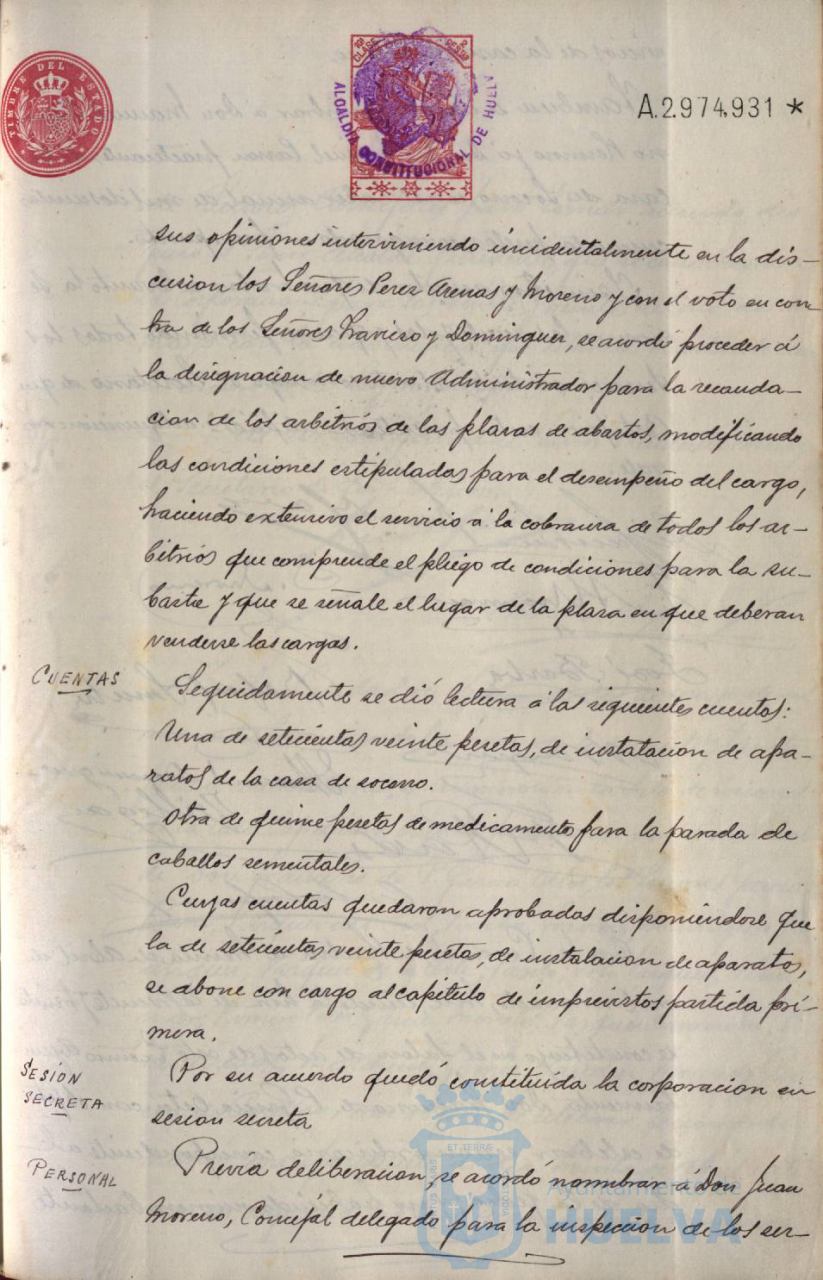 TIMBRE DEL ESTADO
ALCALDÍA CONSTITUCIONAL DE HUELVA
A.2.974.931 *
sus opiniones interviniendo incidentalmente en la dis-
cusion los Señores Perez Arenas y Moreno y con el voto en con-
tra de los Señores Travieso y Dominguez, se acordó proceder á
la designacion de nuevo Administrador para la recauda-
cion de los arbitrios de las plazas de abastos, modificando
las condiciones estipuladas para el desempeño del cargo,
haciendo extensivo el servicio á la cobranza de todos los ar-
bitrios que comprende el pliego de condiciones para la su-
basta y que se señale el lugar de la plaza en que deberan
venderse las cargas.
CUENTAS
Seguidamente se dió lectura á las siguientes cuentas:
Una de setecientas veinte pesetas, de instalacion de apa-
ratos de la casa de socorro.
Otra de quince pesetas de medicamentos para la parada de
caballos sementales.
Cuyas cuentas quedaron aprobadas disponiéndose que
la de setecientas veinte pesetas, de instalacion de aparatos,
se abone con cargo al capitulo de imprevistos partida pri-
mera.
SESIÓN
SECRETA
Por su acuerdo quedó constituida la corporacion en
sesion secreta
PERSONAL
Previa deliberacion, se acordó nombrar á Don Juan
Moreno, Concejal delegado para la inspeccion de los ser-
Ayuntamiento de
HUELVA